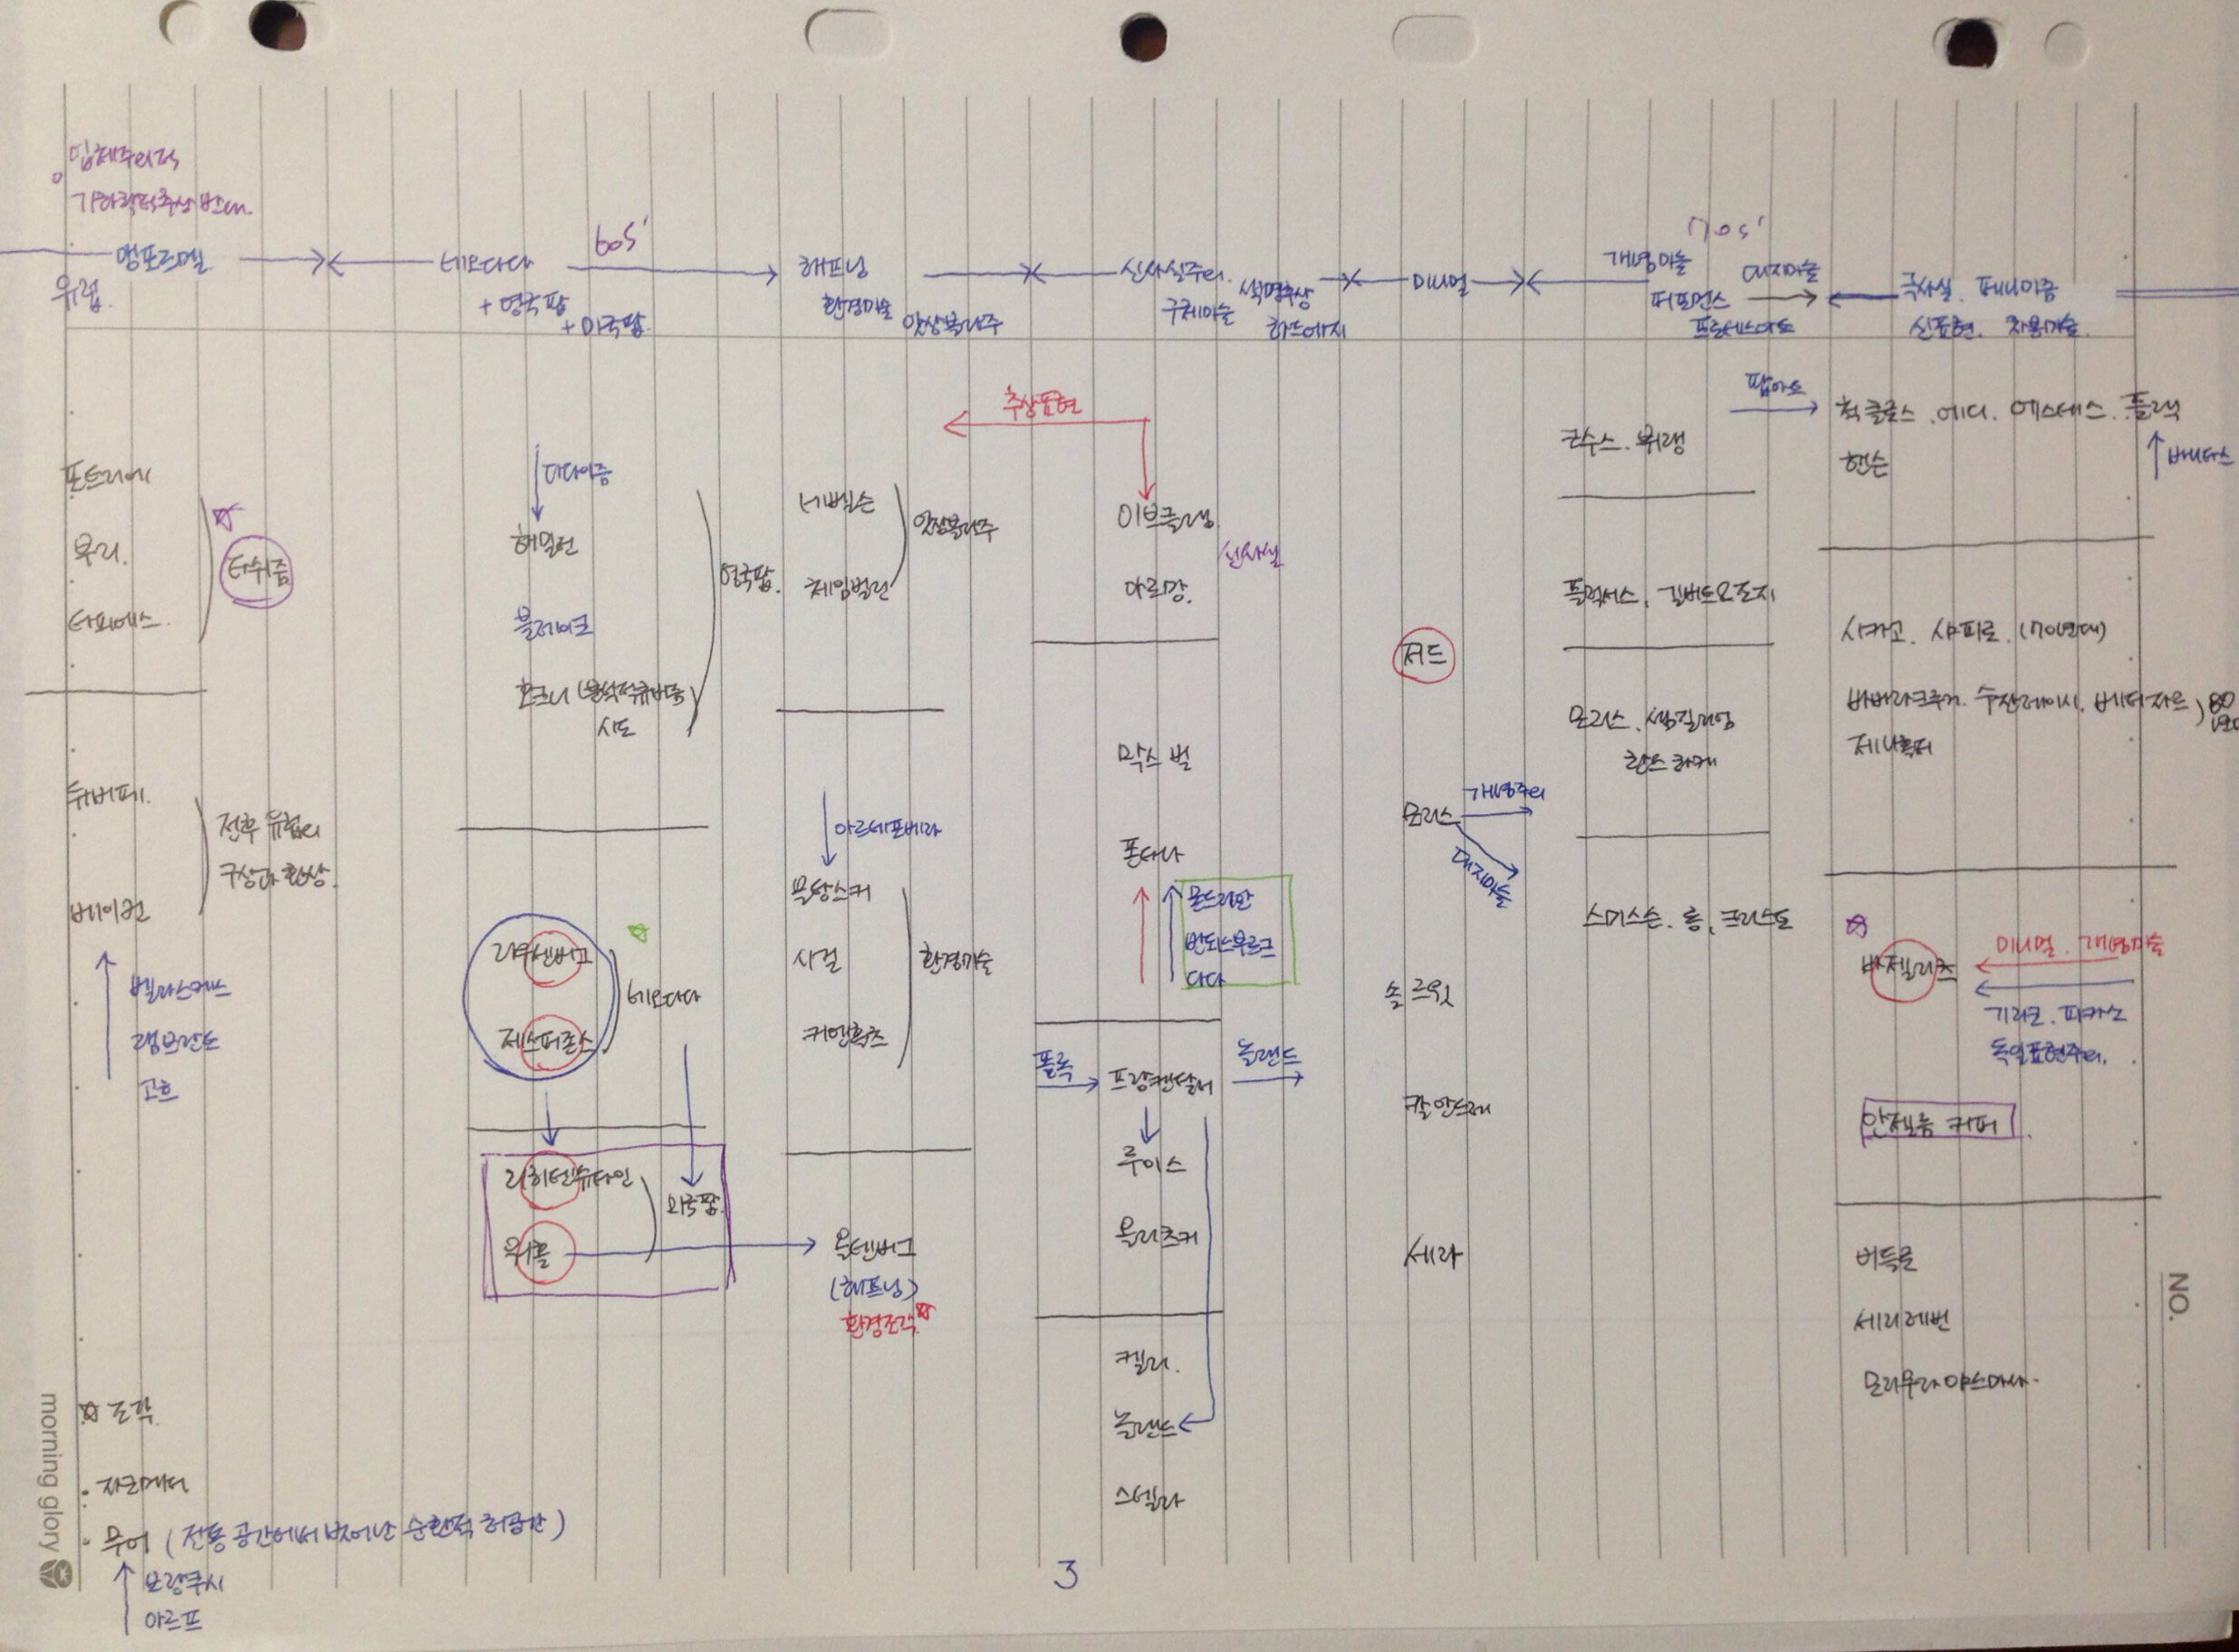 입체주의적
기하학적추상 반대.
앵포르멜
유럽.
네오다다
60s'
+ 영국팝
+ 미국팝
해프닝
환경미술
앗상블라주
신사실주의.
구체미술
색면추상
하드에지
미니멀
70s'
개념미술
대지미술
퍼포먼스
프로세스아트
극사실. 페미니즘
신표현. 차용미술.
포트리에
부리.
타피에스.
타쉬즘
뒤버페.
베이컨
전후 유럽의
구상과 환상.
벨라스케스
램브란트
고흐
☆ 조각.
· 자코메티
· 무어 (전통 공간에서 벗어난 순환적 허공간)
브랑쿠시
아르프
다다이즘
해밀턴
블레이크
호크니 (분석적큐비즘
시도
영국팝.
라우센버그
제스퍼존스
네오다다
리히텐슈타인
워홀
미국팝.
네벨슨
체임벌린
앗상블라주
아르테포베라
뫃탕스키
시걸
키엔홀츠
환경미술
올덴버그
(해프닝)
환경조각☆
추상표현
이브클랭
아르망.
신사실
막스 빌
폰타나
몬드리안
반되스부르크
다다
폴록
프랑켄탈러
놀랜드
루이스
올리츠키
켈리.
놀랜드
스텔라
저드
모리스
개념주의
대지미술
솔 르윗
칼 안드레
세라
코수스. 뷔랭
플럭서스. 길버트오조지
모리스. 샘길리엄
한스 하케
스미스슨. 롱. 크리스토
팝아트
척 클로스. 에디. 에스테스. 플랙
핸슨
바니타스
시카고. 샤피로. (70년대)
바버라크루거. 수잔레이시. 베티자르 ) 80년대
제니홀저
바젤리츠
미니멀. 개념미술
기라코. 피카소
독일표현주의.
안젤름 키퍼.
비들로
세리레빈
모리무라야스마사.
3
NO.
morning glory